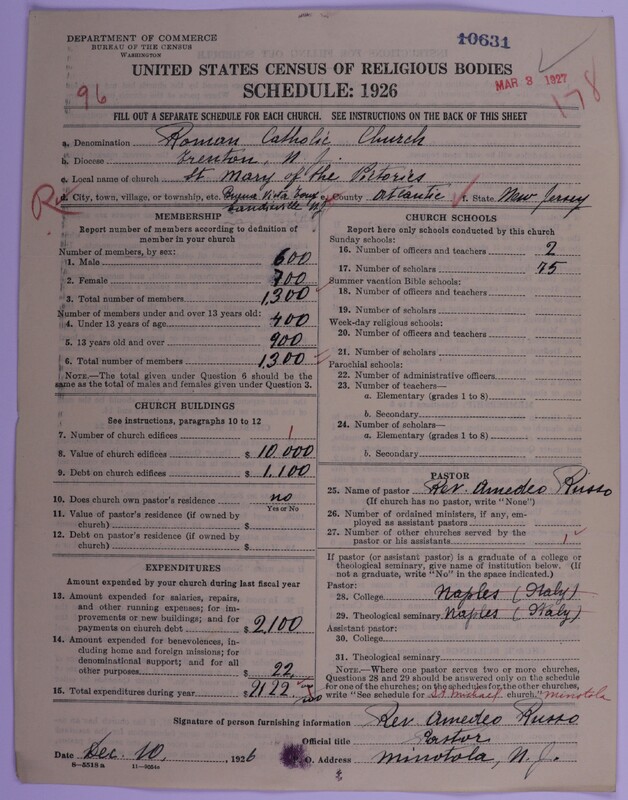 DEPARTMENT OF COMMERCE
BUREAU OF THE CENSUS
WASHINGTON
10631
UNITED STATES CENSUS OF RELIGIOUS BODIES
MAR 3 1927
SCHEDULE: 1926
96
178
FILL OUT A SEPARATE SCHEDULE FOR EACH CHURCH. SEE INSTRUCTIONS ON THE BACK OF THIS SHEET
a. Denomination Roman Catholic Church
b. Diocese Trenton, N. J.
c. Local name of church St Mary of the Victories
d. City, town, village, or township, etc. Buena Vista Twp e. County Atlantic f. State New Jersey
Landisville N.J.
MEMBERSHIP
Report number of members according to definition of
member in your church
Number of members, by sex:
1. Male 600
2. Female 700
3. Total number of members 1,300
Number of members under and over 13 years old:
4. Under 13 years of age 400
5. 13 years old and over 900
6. Total number of members 1300
NOTE.—The total given under Question 6 should be the
same as the total of males and females given under Question 3.
CHURCH BUILDINGS
See instructions, paragraphs 10 to 12
7. Number of church edifices 1
8. Value of church edifices $ 10,000
9. Debt on church edifices $ 1,100
10. Does church own pastor's residence no
Yes or No
11. Value of pastor's residence (if owned by
church) $
12. Debt on pastor's residence (if owned by
church) $
EXPENDITURES
Amount expended by your church during last fiscal year
13. Amount expended for salaries, repairs,
and other running expenses; for im-
provements or new buildings; and for
payments on church debt $ 2,100
14. Amount expended for benevolences, in-
cluding home and foreign missions; for
denominational support; and for all
other purposes $ 22
15. Total expenditures during year $ 2122
CHURCH SCHOOLS
Report here only schools conducted by this church
Sunday schools:
16. Number of officers and teachers 2
17. Number of scholars 75
Summer vacation Bible schools:
18. Number of officers and teachers
19. Number of scholars
Week-day religious schools:
20. Number of officers and teachers
21. Number of scholars
Parochial schools:
22. Number of administrative officers
23. Number of teachers—
a. Elementary (grades 1 to 8)
b. Secondary
24. Number of scholars—
a. Elementary (grades 1 to 8)
b. Secondary
PASTOR
25. Name of pastor Rev. Amedeo Russo
(If church has no pastor, write "None")
26. Number of ordained ministers, if any, em-
ployed as assistant pastors
27. Number of other churches served by the
pastor or his assistants 1
If pastor (or assistant pastor) is a graduate of a college or
theological seminary, give name of institution below. (If
not a graduate, write "No" in the space indicated.)
Pastor:
28. College Naples (Italy)
29. Theological seminary Naples (Italy)
Assistant pastor:
30. College
31. Theological seminary
NOTE.—Where one pastor serves two or more churches,
Questions 28 and 29 should be answered only on the schedule
for one of the churches; on the schedules for the other churches,
write "See schedule for St Michael church." Minotola
Signature of person furnishing information Rev. Amedeo Russo
Official title Pastor
Date Dec. 10, 1926 P. O. Address Minotola, N. J.
8—5518a 11—9054a